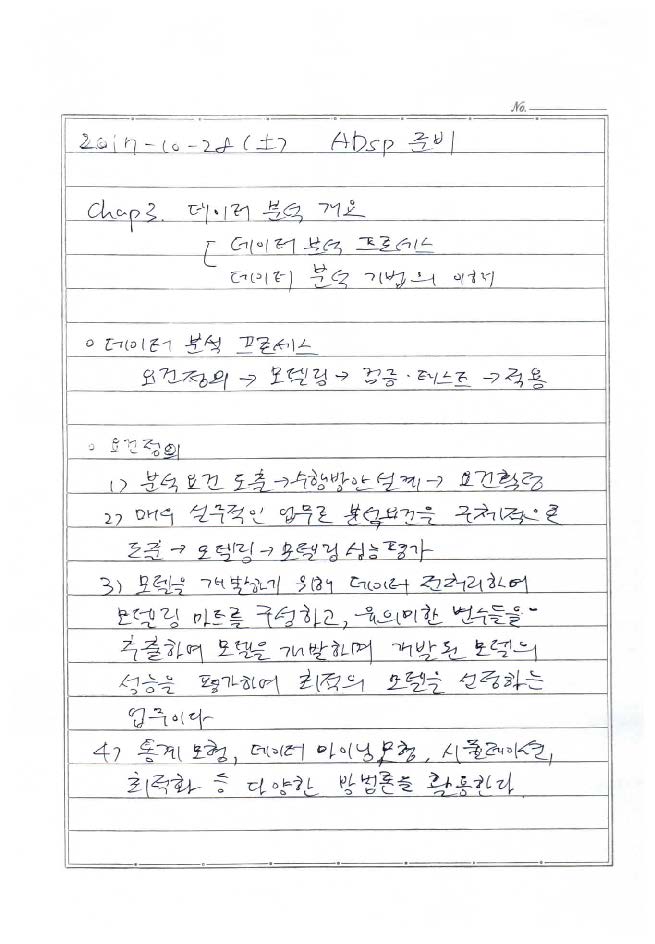 No.
2017-10-28(土) ADsp 준비
Chap3. 데이터 분석 개요
데이터 분석 프로세스
데이터 분석 기법의 이해
○ 데이터 분석 프로세스
요건정의 → 모델링 → 검증·테스트 → 적용
○ 요건정의
1) 분석요건 도출 → 수행방안 설계 → 요건확정
2) 매우 실무적인 업무로 분석요건을 구체적으로
도출 → 모델링 → 모델링 성능평가
3) 모델을 개발하기 위해 데이터 전처리하여
모델링 마트를 구성하고, 유의미한 변수들을
추출하며 모델을 개발하며 개발된 모델의
성능을 평가하여 최적의 모델을 선정하는
업무이다
4) 통계모형, 데이터 마이닝 모형, 시뮬레이션,
최적화 등 다양한 방법론을 활용한다.